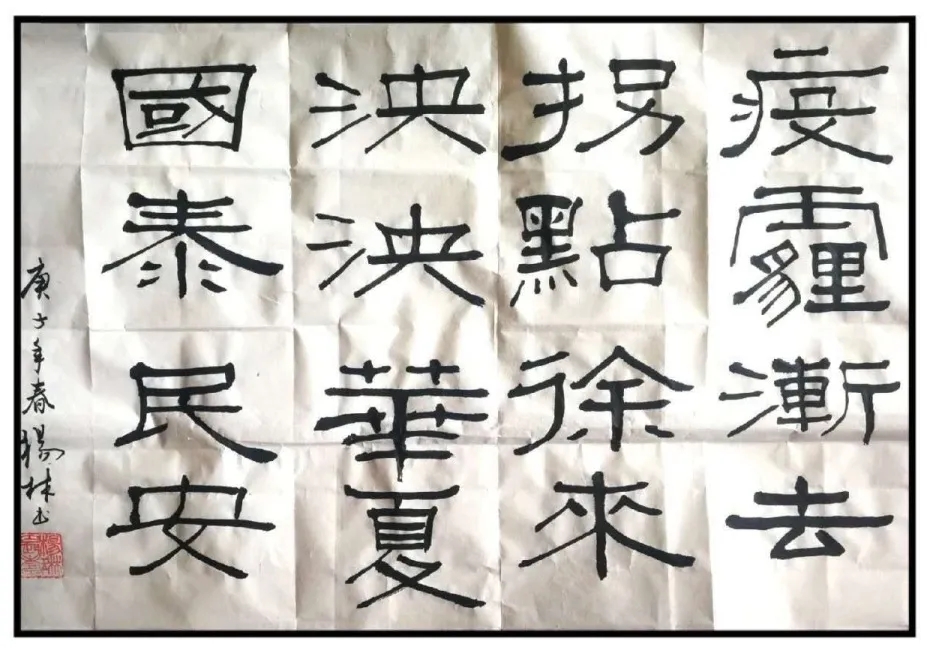 疫霾漸去
拐點徐來
泱泱華夏
國泰民安
庚子年春楊林书